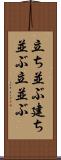 立ち並ぶ建ち
並ぶ立並ぶ